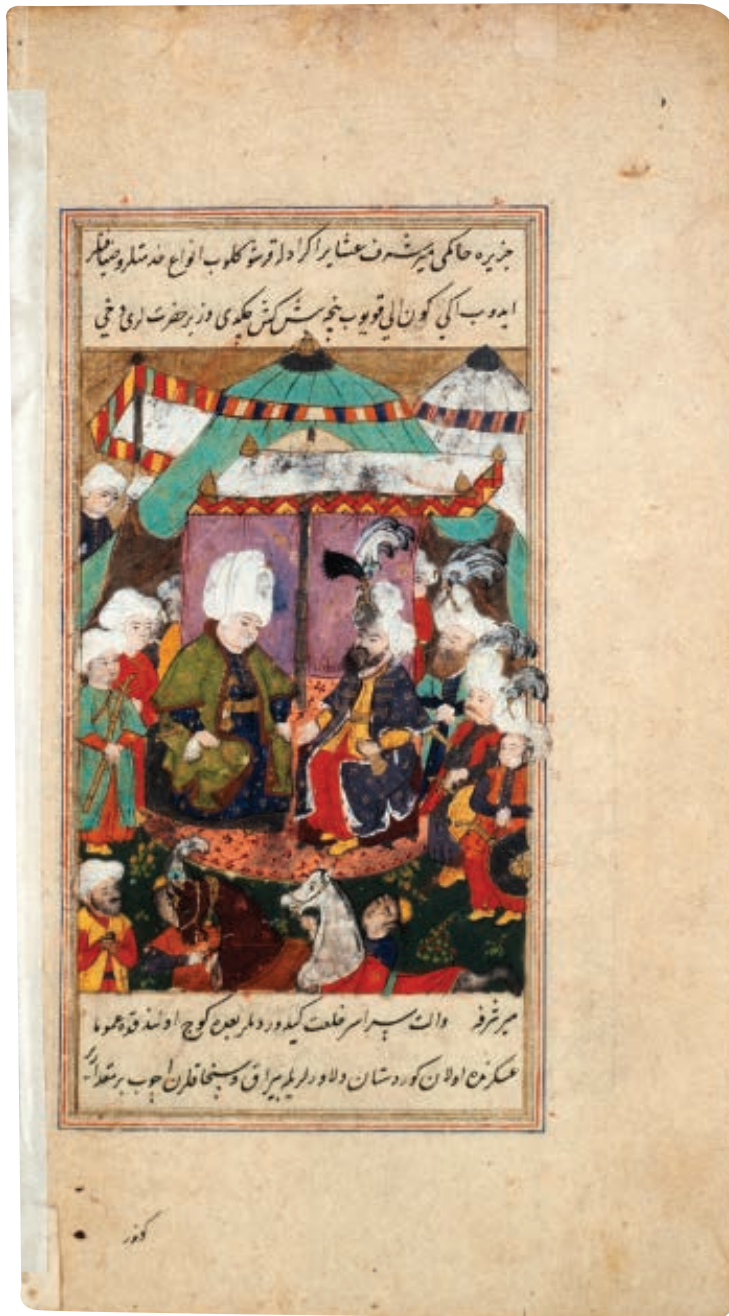 جزیره حاکمی میر شرف عشایر اکراد له قرشو کلوب انواع خدمتلر و ضیافتلر
ایدوب ایکی کون الی قویوب نیچه پیش کش چکدی وزیر حضرتلری دخی
میر شرفه والت سراسر خلعت کیدوردیلر بعده کوچ اولندقده عموما
عسکرده اولان کوردستان دلاورلریله بیراق و سنجاقلرن اچوب بر مقدار یر